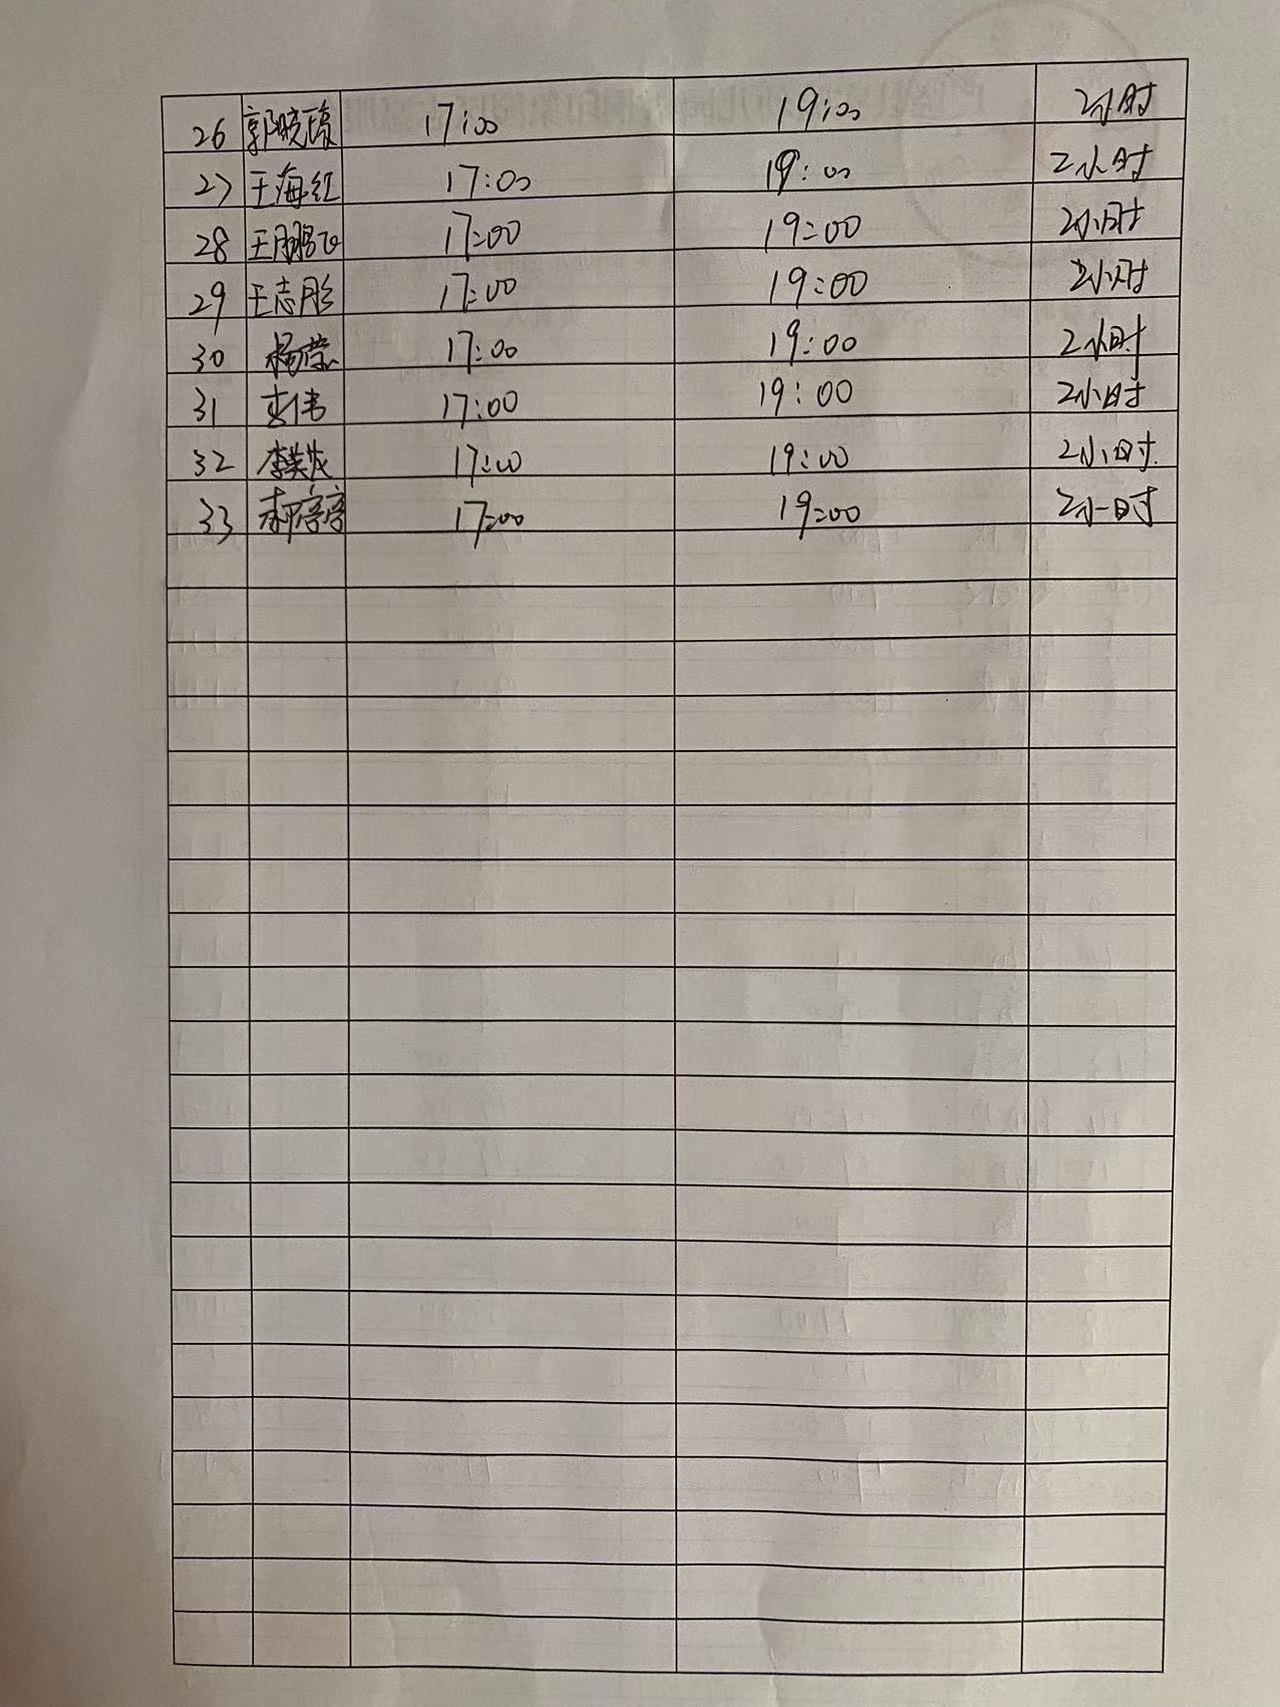 26 郭晓琼 17:00 19:00 2小时
27 王海红 17:00 19:00 2小时
28 王鹏飞 17:00 19:00 2小时
29 王志彤 17:00 19:00 2小时
30 杨蓉 17:00 19:00 2小时
31 李伟 17:00 19:00 2小时
32 李英发 17:00 19:00 2小时
33 郝宁宁 17:00 19:00 2小时